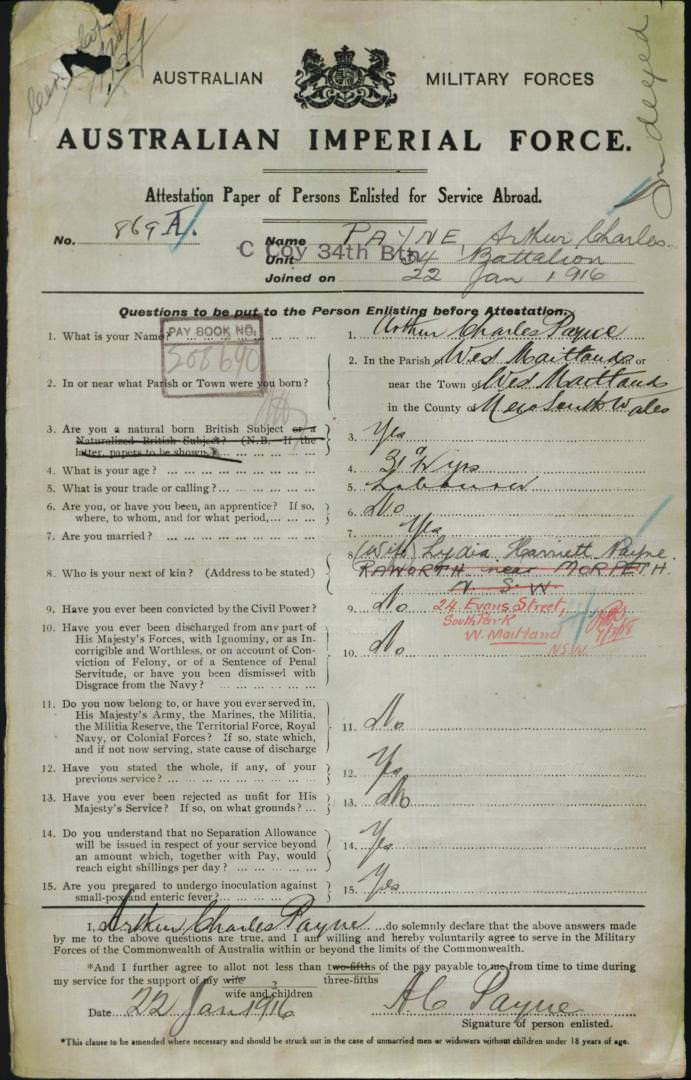 AUSTRALIAN MILITARY FORCES
AUSTRALIAN IMPERIAL FORCE.
Indexed
Attestation Paper of Persons Enlisted for Service Abroad.
No. 869 A. Name PAYNE, Arthur Charles.
C Coy 34th Btn. Unit 34 Battalion
Joined on 22 Jan 1916
Questions to be put to the Person Enlisting before Attestation.
PAY BOOK NO.
208640
1. What is your Name? 1. Arthur Charles Payne
2. In or near what Parish or Town were you born? 2. In the Parish of West Maitland or
near the Town of West Maitland
in the County of New South Wales
3. Are you a natural born British Subject or a 3. Yes
Naturalized British Subject? (N.B. If the
latter, papers to be shown.)
4. What is your age? 4. 31
5. What is your trade or calling? 5. Labourer
6. Are you, or have you been, an apprentice? If so, 6. No
where, to whom, and for what period,
7. Are you married? 7. Yes
8. Who is your next of kin? (Address to be stated) 8. (Wife) Lydia Harriett Payne.
RAWORTH near MORPETH.
N S W
24 Evans Street,
South Park
W. Maitland
N.S.W.
9. Have you ever been convicted by the Civil Power? 9. No
10. Have you ever been discharged from any part of 10. No
His Majesty's Forces, with Ignominy, or as In-
corrigible and Worthless, or on account of Con-
viction of Felony, or of a Sentence of Penal
Servitude, or have you been dismissed with
Disgrace from the Navy?
11. Do you now belong to, or have you ever served in, 11. No
His Majesty's Army, the Marines, the Militia,
the Militia Reserve, the Territorial Force, Royal
Navy, or Colonial Forces? If so, state which,
and if not now serving, state cause of discharge
12. Have you stated the whole, if any, of your 12. Yes
previous service?
13. Have you ever been rejected as unfit for His 13. No
Majesty's Service? If so, on what grounds?
14. Do you understand that no Separation Allowance 14. Yes
will be issued in respect of your service beyond
an amount which, together with Pay, would
reach eight shillings per day?
15. Are you prepared to undergo inoculation against 15. Yes
small-pox and enteric fever?
I, Arthur Charles Payne do solemnly declare that the above answers made
by me to the above questions are true, and I am willing and hereby voluntarily agree to serve in the Military
Forces of the Commonwealth of Australia within or beyond the limits of the Commonwealth.
*And I further agree to allot not less than two-fifths of the pay payable to me from time to time during
three-fifths
my service for the support of my wife
wife and children
Date 22 Jan 1916 A C Payne
Signature of person enlisted.
*This clause to be amended where necessary and should be struck out in the case of unmarried men or widowers without children under 18 years of age.